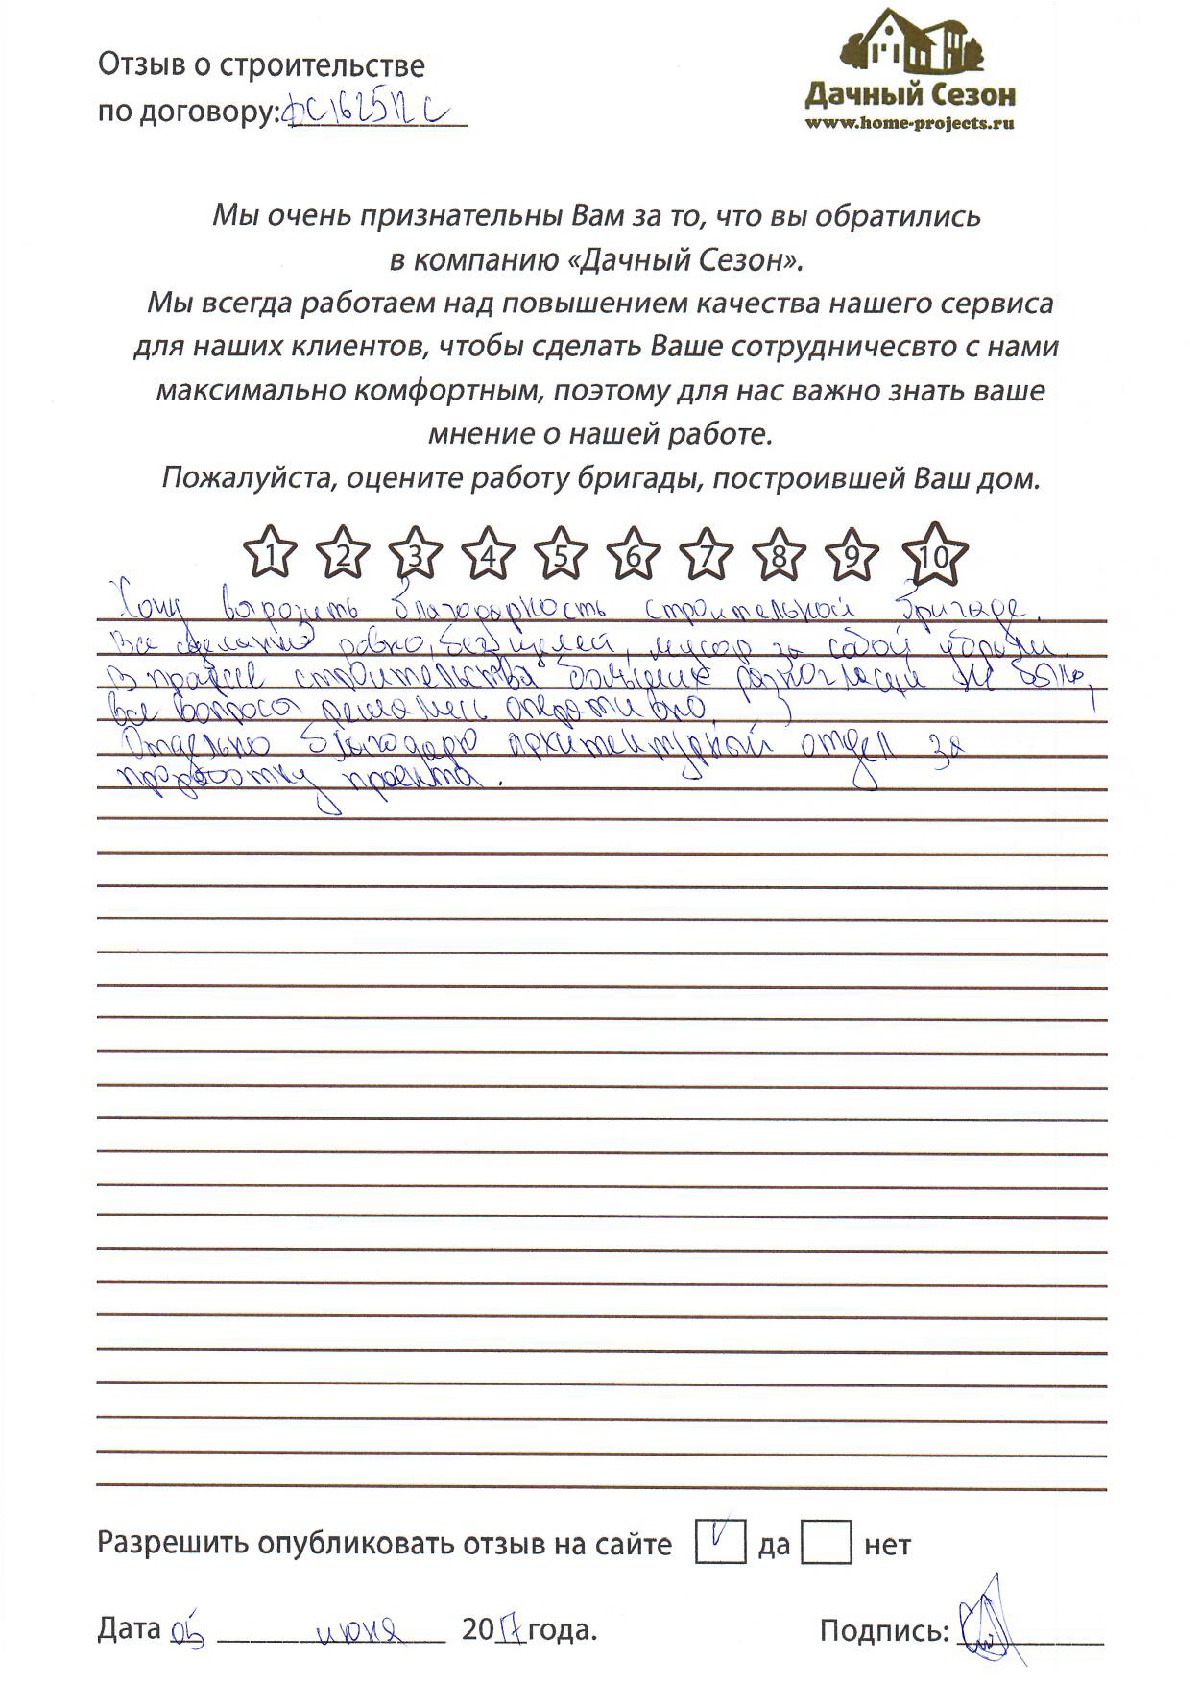 Отзыв о строительстве
по договору: ДС162512С
Дачный Сезон
www.home-projects.ru
Мы очень признательны Вам за то, что вы обратились
в компанию «Дачный Сезон».
Мы всегда работаем над повышением качества нашего сервиса
для наших клиентов, чтобы сделать Ваше сотрудничесвто с нами
максимально комфортным, поэтому для нас важно знать ваше
мнение о нашей работе.
Пожалуйста, оцените работу бригады, построившей Ваш дом.
1 2 3 4 5 6 7 8 9 10
Хочу выразить благодарность строительной бригаде.
Все сделано ровно, без щелей, мусор за собой убрали.
В процессе строительства больших разногласий не было,
все вопросы решались оперативно.
Отдельно благодарю архитектурный отдел за
проработку проекта.
Разрешить опубликовать отзыв на сайте V да нет
Дата 05 июня 2017 года. Подпись: